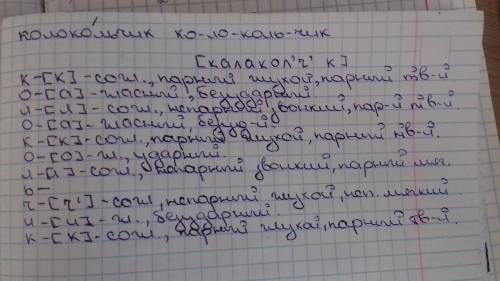 колоко́льчик ко-ло-коль-чик
[калакол'ч' к]
к-[к]-согл., парний глухой, парний тв-й
о-[а]-гласний, безударний
л-[л]-согл., непарный, звонкий, пар-й тв-й
о-[а]-гласний, безуд-й.
к-[к]-согл., парний глухой, парний тв-й.
о-[о]-гл., ударний.
л-[л]-согл., непарний звонкий, парний мяг.
ь-
ч-[ч']-согл., непарний глухой, неп. мягкий
и-[и]-гл., безударний.
к-[к]-согл., парний глухой, парний тв-й.